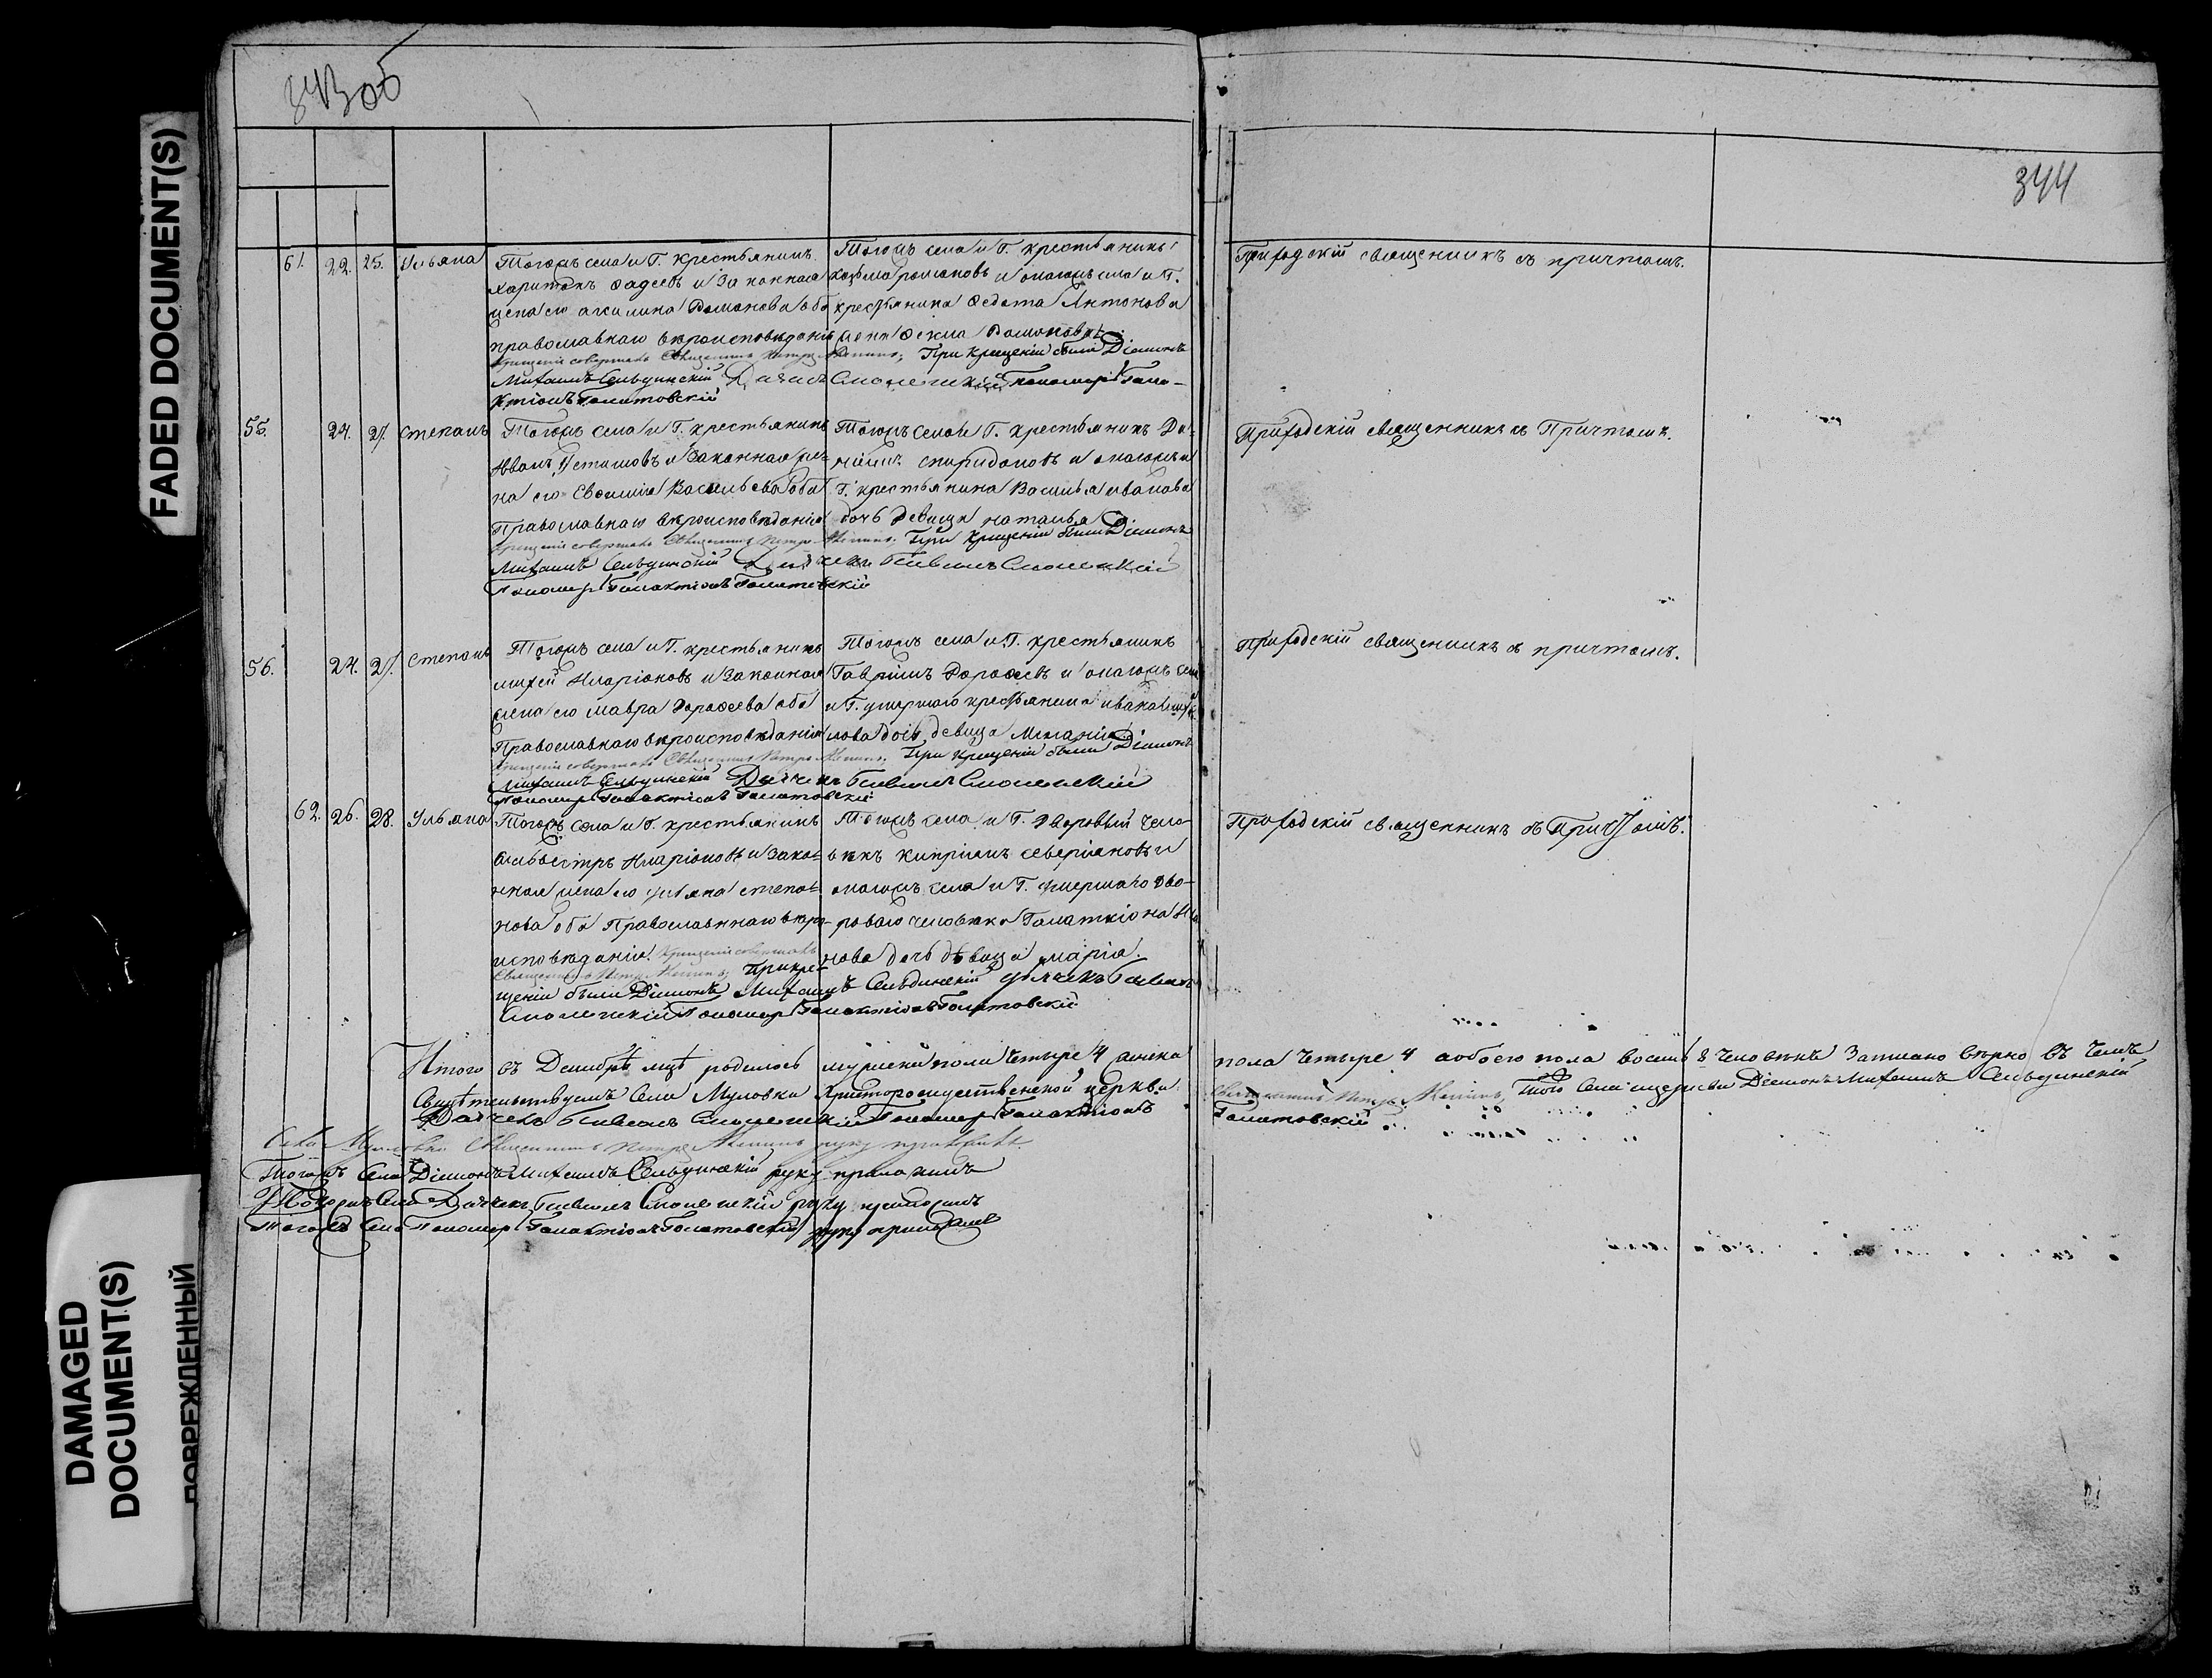 343об
344
FADED DOCUMENT(S)
DAMAGED
DOCUMENT(S)
ПОВРЕЖДЕННЫЙ
61. 22. 25. Ульяна
Тогожъ села и Г. крестьянинъ
Харитонъ Фадеевъ и Законная
жена его акилина Романова оба
православнаго вѣроисповѣданія
Тогожъ села и Г. крестьянинъ
козьма романовъ и онагожъ села и Г.
крестьянина Федота Антонова
жена Фекла Романова
Крещеніе совершалъ Священникъ Петръ При крещеніи были Діаконъ
Михаилъ Сельдинскій Дьячекъ Смоленскій Пономарь Гала-
ктіонъ Галатовскій
Приходскій священникъ съ причтомъ.
55. 24. 27. степанъ
Тогожъ села и Г. крестьянинъ
Иванъ Устиновъ и Законная же-
на его Евфимія Васильева оба
Православнаго вѣроисповѣданія
Тогожъ села и Г. крестьянинъ Да-
ніилъ спиридоновъ и онагожъ и
Г. крестьянина Василья иванова
дочь девица наталья
Крещеніе совершалъ Священникъ Петръ При крещеніи были Діаконъ
Михаилъ Сельдинскій Дьячекъ Павелъ Смоленскій
Пономарь Галактіонъ Галатовскій
Приходскій священникъ съ Причтомъ.
56. 24. 27. степанъ
Тогожъ села и Г. крестьянинъ
михей Иларіоновъ и Законная
жена его мавра Дорофеева оба
Православнаго вѣроисповѣданія
Тогожъ села и Г. крестьянинъ
Гавріилъ Дорофеевъ и онагожъ села
и Г. умершаго крестьянина ивана
лова дочь девица Меланія
Крещеніе совершалъ Священникъ Петръ При крещеніи были Діаконъ
Михаилъ Сельдинскій Дьячекъ Павелъ Смоленскій
Пономарь Галактіонъ Галатовскій
Приходскій священникъ съ причтомъ.
62. 26. 28. Ульяна
Тогожъ села и Г. крестьянинъ
Сильвестръ Иларіоновъ и Зако-
нная жена его ульяна степа-
нова оба Православнаго вѣро-
исповѣданія. Крещеніе совершалъ
Тогожъ села и Г. Дворовый чело-
вѣкъ кипріанъ северіановъ и
онагожъ села и Г. умершаго дво-
роваго человѣка Галактіона
нова дочь дѣвица марія.
Священникъ Петръ При кре-
щеніи были Діаконъ Михаилъ Сельдинскій дьячекъ Павелъ
Смоленскій Пономарь Галактіонъ Галатовскій
Приходскій священникъ съ Причтомъ.
Итого въ Декабрѣ мцѣ родилось мужеска пола четыре 4 женска пола четыре 4 а обоего пола восемь 8 человѣкъ Записано вѣрно въ чемъ
Свидѣтельствуемъ Села Муловки Христорождественской церкви Священникъ Петръ Того Села церкви Діаконъ Михаилъ Сельдинскій
Дьячекъ Павелъ Смоленскій Пономарь Галактіонъ Галатовскій
Села Муловки Священникъ Петръ руку приложилъ
Тогожъ Села Діаконъ Михаилъ Сельдинскій руку приложилъ
Тогожъ Села Дьячекъ Павелъ Смоленскій руку приложилъ
Тогожъ Села Пономарь Галактіонъ Галатовскій руку приложилъ